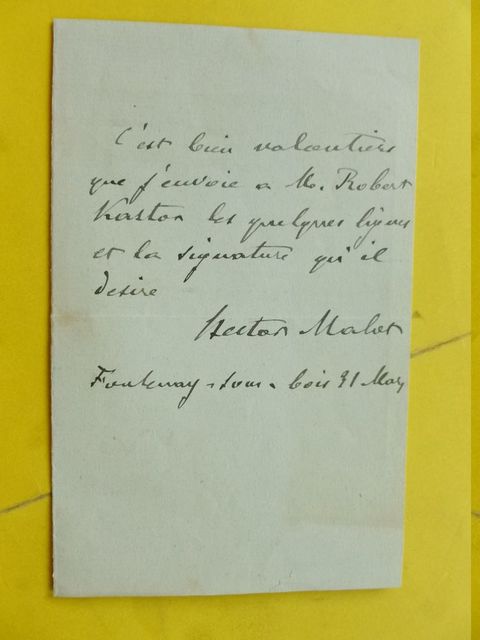 C'est bien volontiers
que j'envoie a M. Robert
Kastor les quelques lignes
et la signature qu'il
desire
Hector Malot
Fontenay-sous-bois 31 Mai